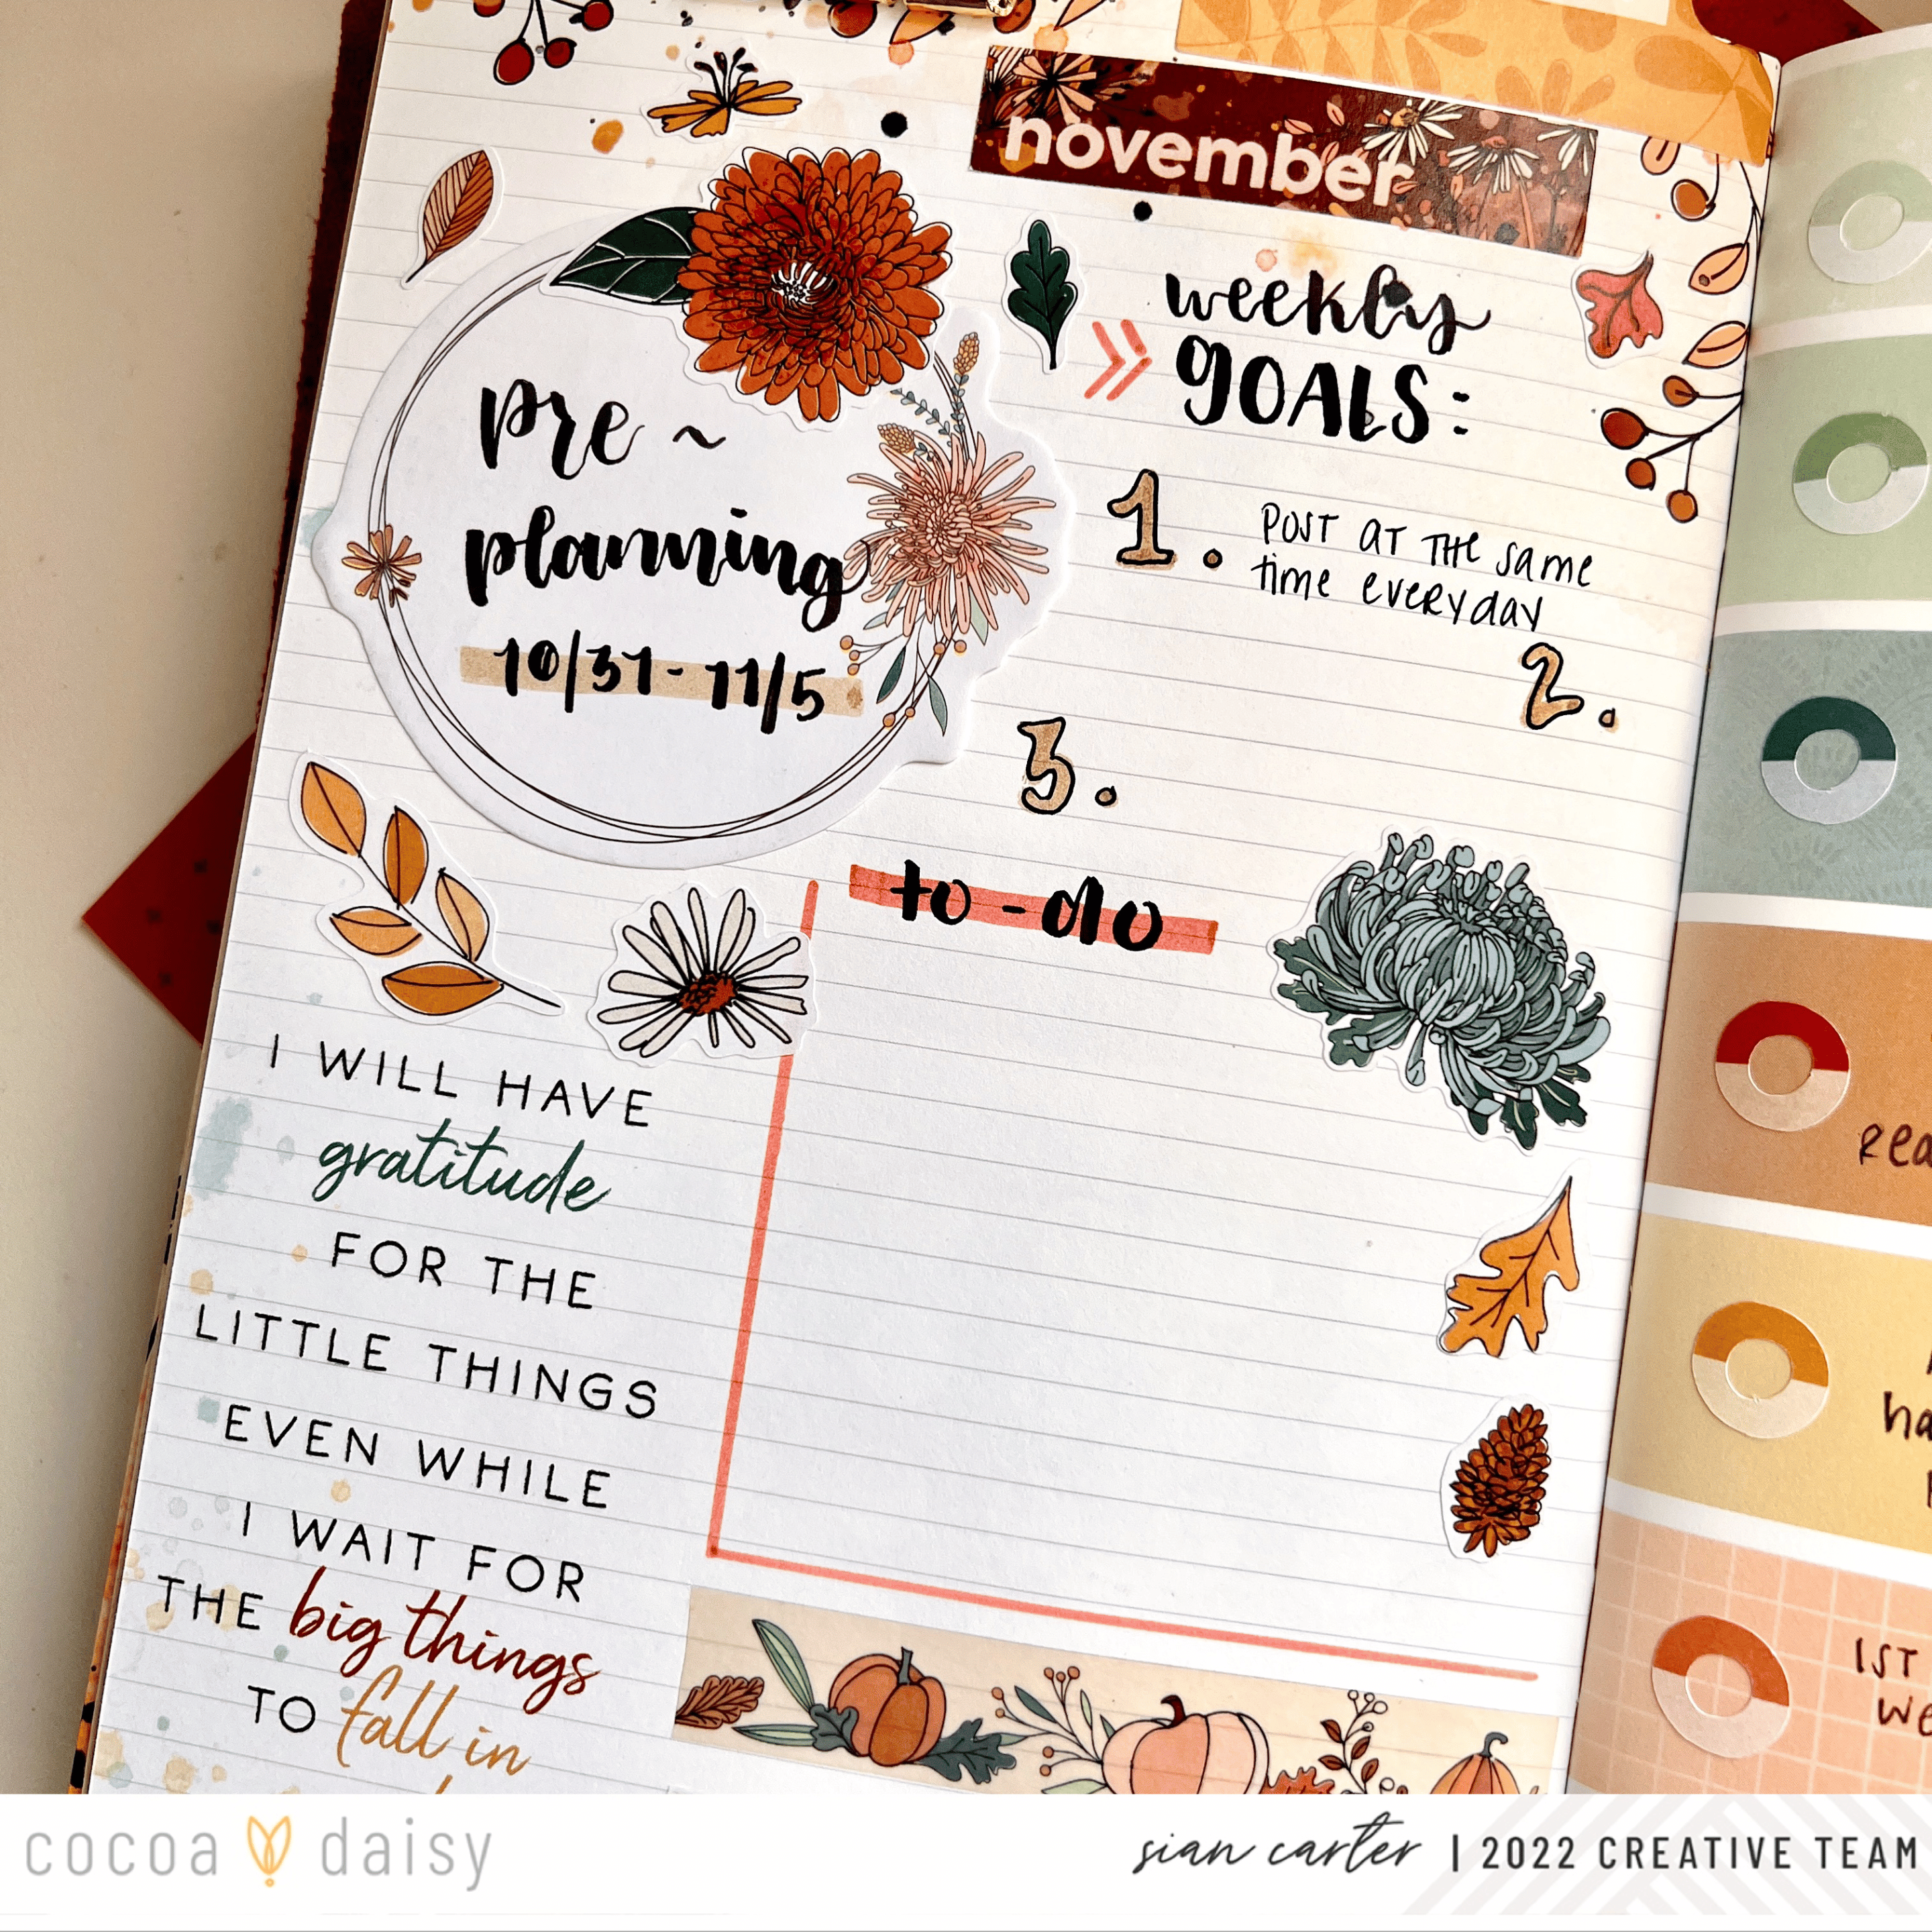 november
weekly
GOALS:
pre~
planning
10/31-11/5
1. POST AT THE Same
time everyday
2.
3.
to-do
I WILL HAVE
gratitude
FOR THE
LITTLE THINGS
EVEN WHILE
I WAIT FOR
THE big things
TO fall in
1ST
cocoa daisy
sian carter | 2022 CREATIVE TEAM